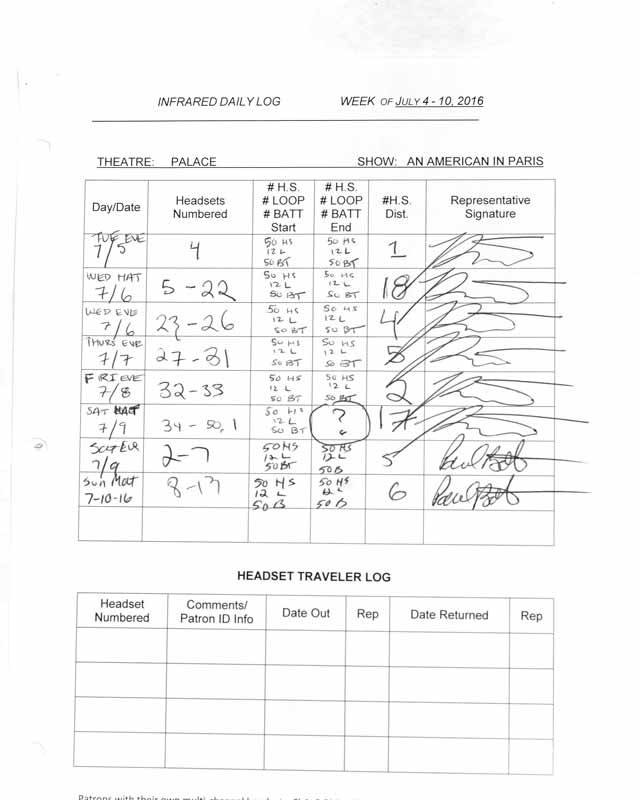 INFRARED DAILY LOG WEEK OF JULY 4 - 10, 2016
THEATRE: PALACE SHOW: AN AMERICAN IN PARIS
Day/Date Headsets Numbered # H.S. # LOOP # BATT Start # H.S. # LOOP # BATT End #H.S. Dist. Representative Signature
TUE EVE 7/5 4 50 HS 12 L 50 BT 50 HS 12 L 50 BT 1
WED MAT 7/6 5 - 22 50 HS 12 L 50 BT 50 HS 12 L 50 BT 18
WED EVE 7/6 23 - 26 50 HS 12 L 50 BT 50 HS 12 L 50 BT 4
THURS EVE 7/7 27 - 31 50 HS 12 L 50 BT 50 HS 12 L 50 BT 5
FRI EVE 7/8 32 - 33 50 HS 12 L 50 BT 50 HS 12 L 50 BT 2
SAT MAT 7/9 34 - 50, 1 50 HS 12 L 50 BT ? 17
SAT EVE 7/9 2 - 7 50 HS 12 L 50 BT 50 HS 12 L 50 B 5
Sun Mat 7-10-16 8 - 13 50 HS 12 L 50 B 50 HS 12 L 50 B 6
HEADSET TRAVELER LOG
Headset Numbered Comments/ Patron ID Info Date Out Rep Date Returned Rep